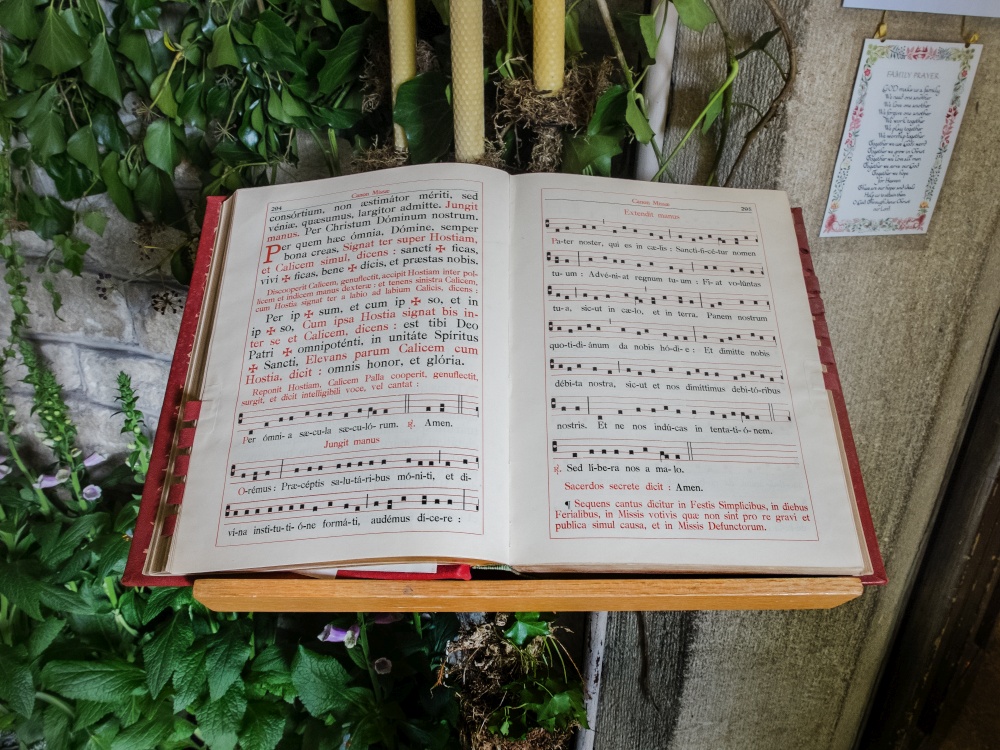 204
Canon Missæ
consórtium, non æstimátor mériti, sed
véniæ, quæsumus, largítor admítte. Jungit
manus. Per Christum Dóminum nostrum.
Per quem hæc ómnia, Dómine, semper
bona creas, Signat ter super Hostiam,
et Calicem simul, dicens : sanctí ✠ ficas,
viví ✠ ficas, bene ✠ dícis, et præstas nobis.
Discooperit Calicem, genuflectit, accipit Hostiam inter pol-
licem et indicem manus dexteræ : et tenens sinistra Calicem,
cum Hostia signat ter a labio ad labium Calicis, dicens :
Per ip ✠ sum, et cum ip ✠ so, et in
ip ✠ so, Cum ipsa Hostia signat bis in-
ter se et Calicem, dicens : est tibi Deo
Patri ✠ omnipoténti, in unitáte Spíritus
✠ Sancti, Elevans parum Calicem cum
Hostia, dicit : omnis honor, et glória.
Reponit Hostiam, Calicem Palla cooperit, genuflectit,
surgit, et dicit intelligibili voce, vel cantat :
Per ómni-a sæ-cu-la sæ-cu-ló- rum. ℟. Amen.
Jungit manus
O-rémus : Præ-céptis sa-lu-tá-ri-bus mó-ni-ti, et di-
ví-na insti-tu-ti- ó-ne formá-ti, audémus dí-ce-re :
Canon Missæ
205
Extendit manus
Pa-ter noster, qui es in cæ-lis : Sancti-fi-cé-tur nomen
tu- um : Advé-ni-at regnum tu- um : Fi- at vo-lúntas
tu-a, sic-ut in cæ-lo, et in terra. Panem nostrum
quo-ti-di- ánum da nobis hó-di- e : Et dimítte nobis
débi-ta nostra, sic-ut et nos dimíttimus debi-tó-ribus
nostris. Et ne nos indú-cas in tenta-ti- ó-nem.
℟. Sed lí-be-ra nos a ma- lo.
Sacerdos secrete dicit : Amen.
¶ Sequens cantus dicitur in Festis Simplicibus, in diebus
Ferialibus, in Missis votivis quæ non sint pro re gravi et
publica simul causa, et in Missis Defunctorum.
FAMILY PRAYER
GOD made us a family
We need one another
We love one another
We forgive one another
We work together
We play together
We worship together
Together we use God's word
Together we grow in Christ
Together we love all men
Together we serve our God
Together we hope
for Heaven
These are our hopes and ideals